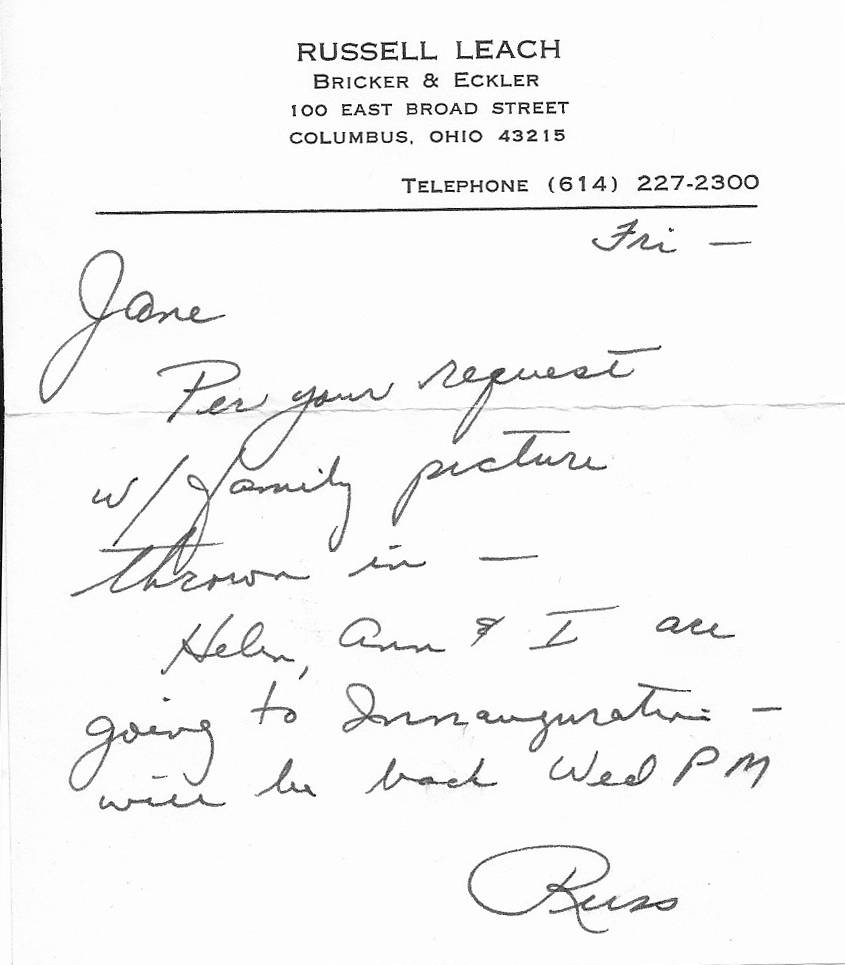 RUSSELL LEACH
BRICKER & ECKLER
100 EAST BROAD STREET
COLUMBUS, OHIO 43215
TELEPHONE (614) 227-2300
Fri —
Jane
Per your request
w/ family picture
thrown in —
Helen, Ann & I are
going to Innauguration —
will be back Wed PM
Russ